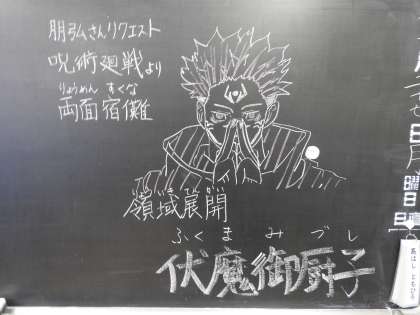 朋弘さんリクエスト
呪術廻戦より
りょうめん すくな
両面宿儺
領域展開
ふくまみづし
伏魔御厨子
曜
日
日直